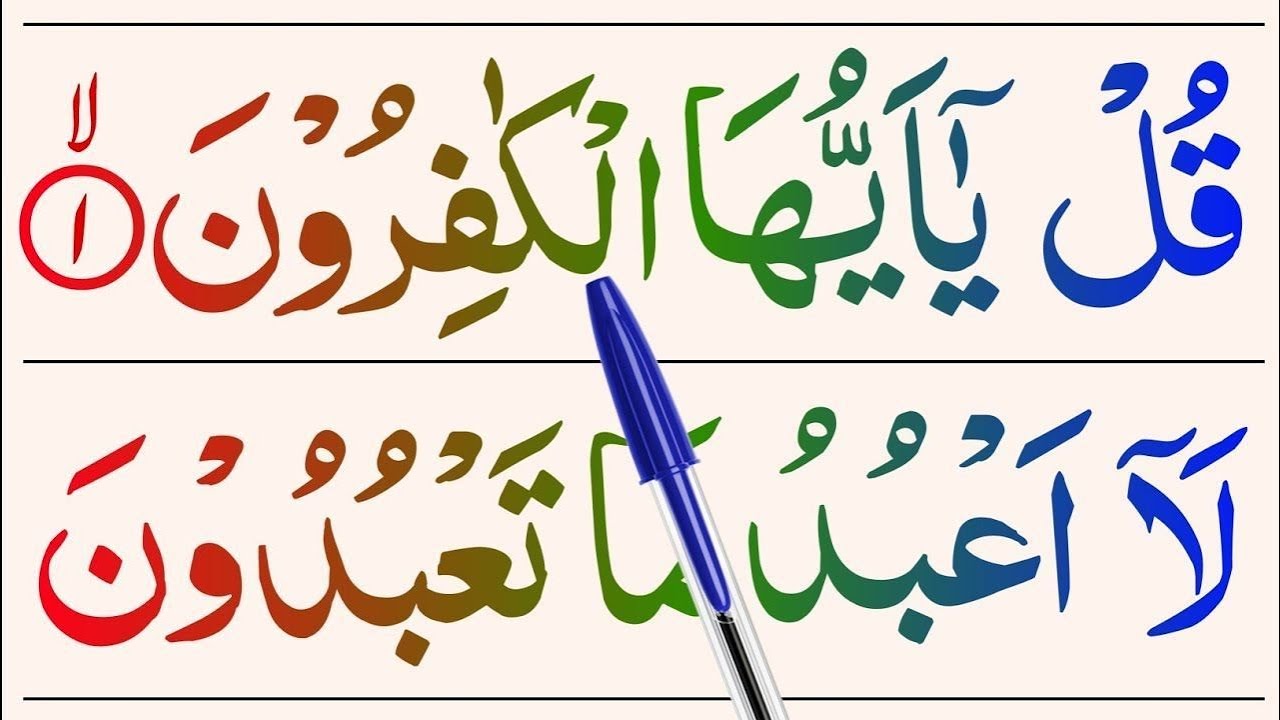 قُلْ يٰٓاَيُّهَا الْكٰفِرُوْنَ ۙ ١
لَآ اَعْبُدُ مَا تَعْبُدُوْنَ